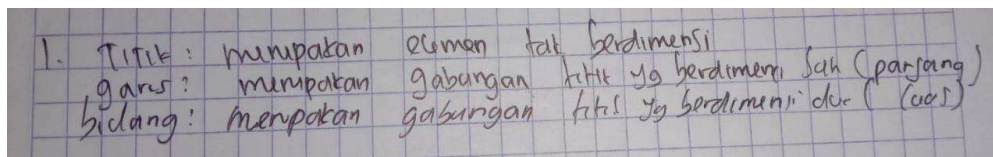 1. Titik : merupakan elemen tak berdimensi
garis : merupakan gabungan titik yg berdimensi satu (panjang)
bidang : merupakan gabungan titik yg berdimensi dua (luas)